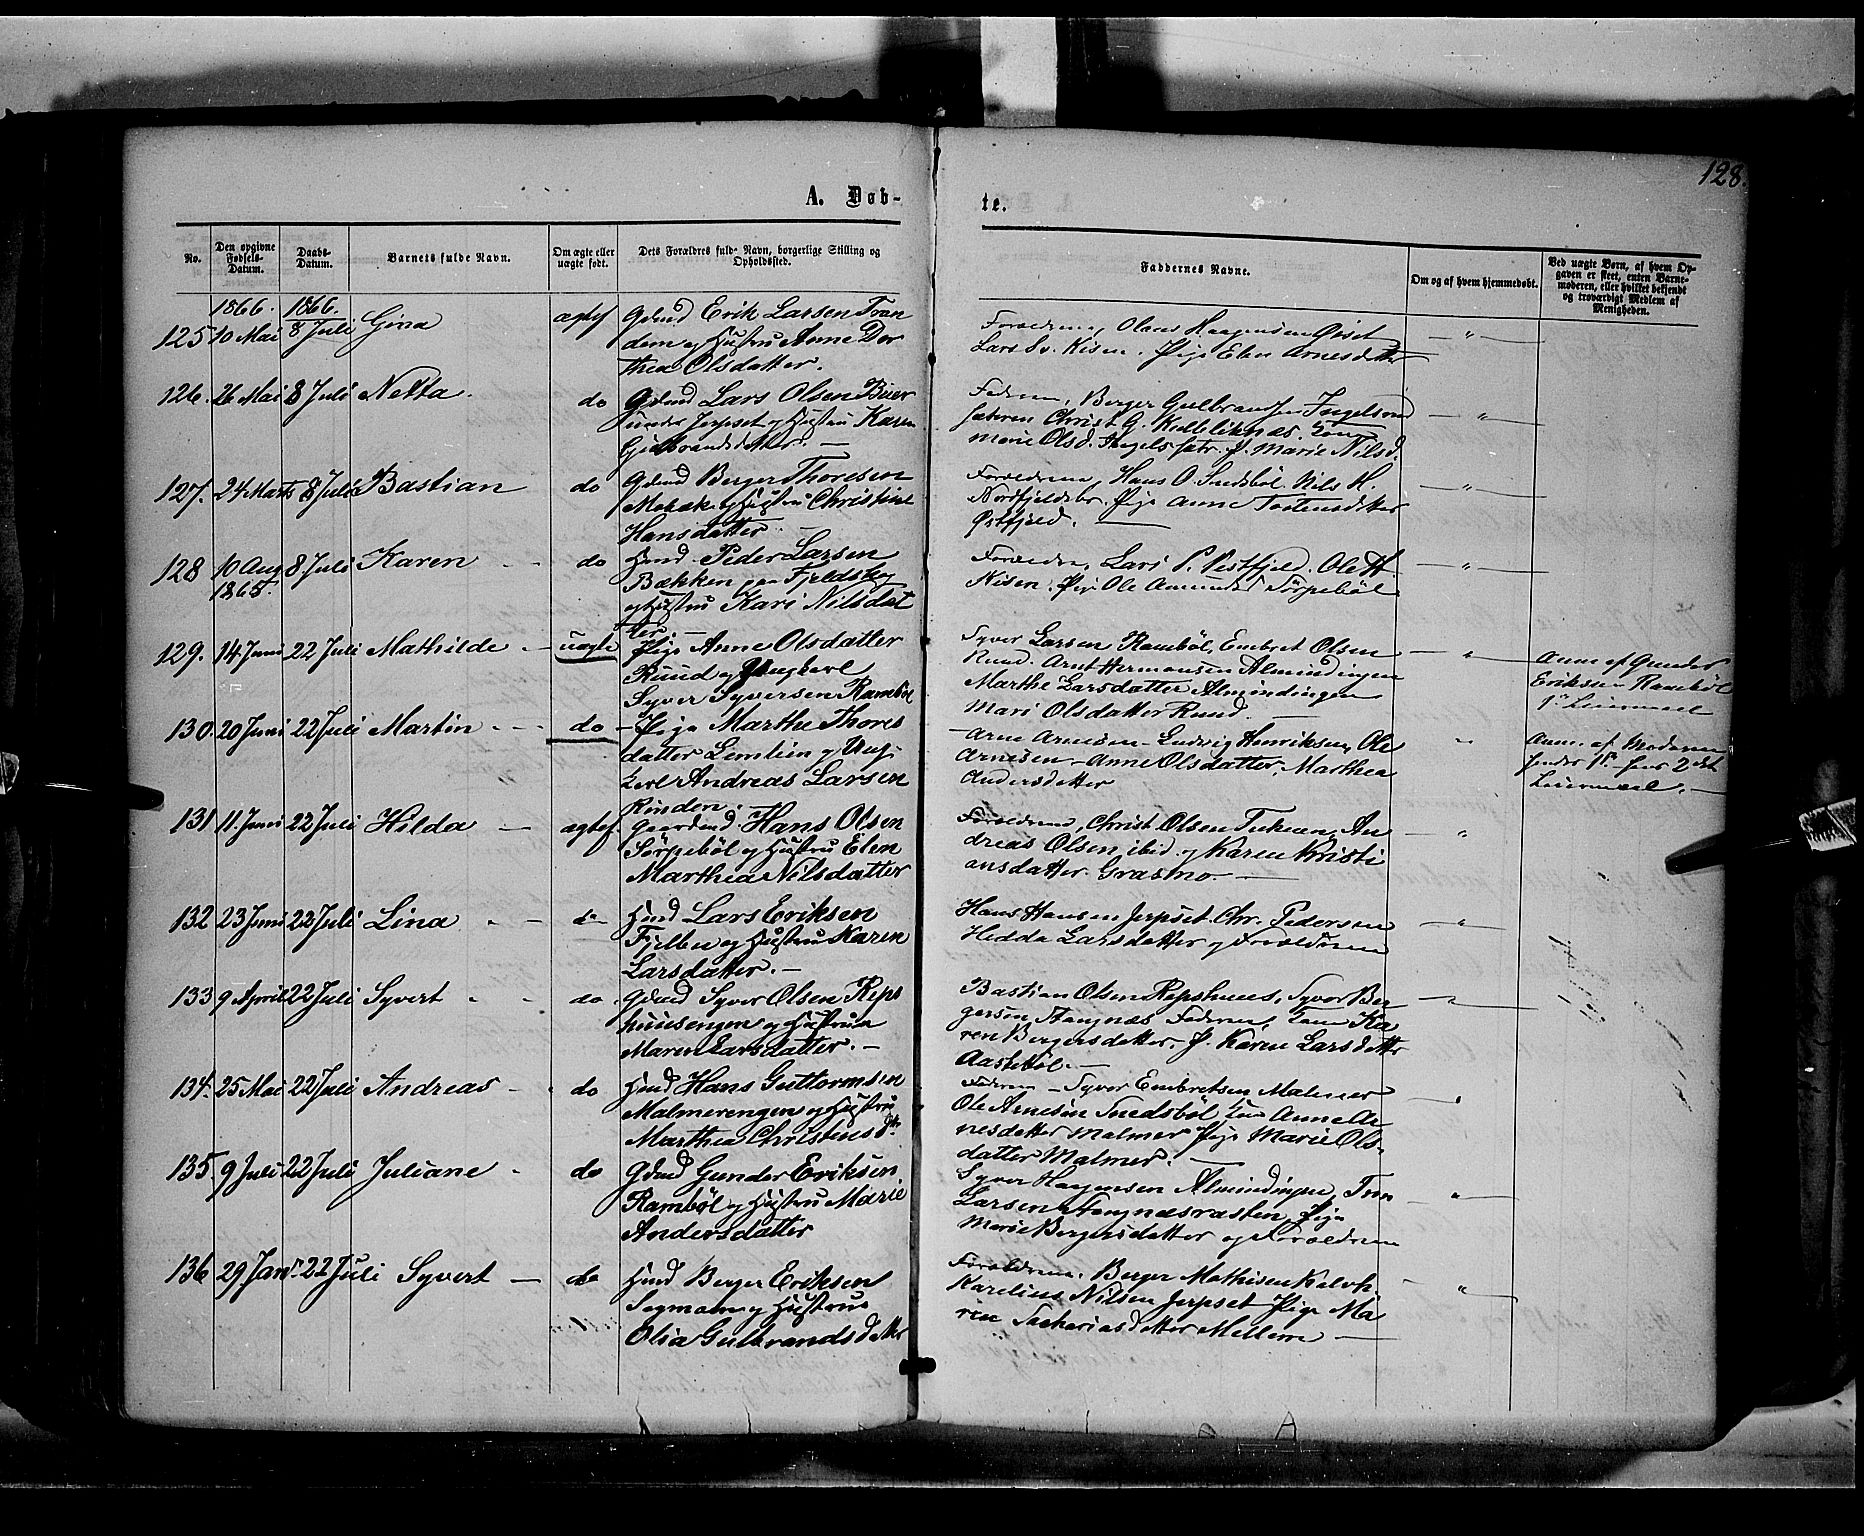 128.
A. Døb-
te.
No.
Den opgivne Fødsels-Datum.
Daabs-Datum.
Barnets fulde Navn.
Om ægte eller uægte født.
Dets Forældres fulde Navn, borgerlige Stilling og Opholdssted.
Faddernes Navne.
Om og af hvem hjemmedøbt.
Ved uægte Børn, af hvem Op-
gaven er skeet, enten Barne-
moderen, eller hvilket bekjendt
og troværdigt Medlem af
Menigheden.
1866. 1866.
125 10 Mai 8 Juli Gina ægtef Gdmd Erik Larsen Tran
dem og Hustru Anne Dor
thea Olsdatter.
Forældrene, Olaus Haagensen
Lars Sv. Kisen. Pige Elen Arnesdatter
126. 26 Mai 8 Juli Netta. do Gdmd Lars Olsen
under Jerpset og Hustru Karen
Gulbrandsdatter. —
Faderen, Berger Gulbrandsen
Christ G. Kone
marie Olsd. P. Marie Nilsd.
127. 24 Marts 8 Juli Bastian do Gdmd Berger Thoresen
og Hustru Christine
Hansdatter
Forældrene, Hans O. Nils H.
Pige Anne Tostensdatter
Østfjeld. —
128 10 Aug 8 Juli Karen - do Hmd. Peder Larsen
1865.
Bækken paa Fjeldshg
og Hustru Kari Nilsdat
ter. —
Forældrene, Lars P. Vestfjeld. Ole H.
Nisen. Pige Ole Amunds Sörpeböl
129. 14 Juni 22 Juli Mathilde - uægte Pige Anne Olsdatter
Ruud og Ungkarl
Syver Syversen Ramböl
Syver Larsen Ramböl, Embret Olsen
Ruud. Arnt Hermansen Almindingen
Marthe Larsdatter Almindingen
Mari Olsdatter Ruud. —
Anm. af Gunder
Eriksen Ramböl
1ste Leiermaal
130. 20 Juni 22 Juli Martin - - do - Pige Marthe Thores
datter Lemlien og Ung-
karl Andreas Larsen
Rinden. —
Arne Arnesen - Ludvig Henriksen, Ole
Arnesen - Anne Olsdatter, Marthea
Andersdatter
Anm. af Moderen
hendes 1ste hans 2det
Leiermaal. —
131 11. Juni 22 Juli Hilda — ægtef. Gaardmd. Hans Olsen
Sörpeböl og Hustru Elen
Marthea Nilsdatter
Forældrene, Christ Olsen An
dreas Olsen ibid. og Karen Kristi
ansdatter Grasmo. —
132 23 Juni 22 Juli Lina - - do Hmd Lars Eriksen
og Hustru Karen
Larsdatter. —
Hans Hansen Jerpset. Chr. Pedersen
Hedda Larsdatter og Forældrene
133 9 April 22 Juli Syvert - - do Gdmd Syver Olsen Reps
huusengen og Hustru
Maren Larsdatter. —
Bastian Olsen Repshuus, Syver Ber
gersen Stangnæs Faderen, Kone Ka
ren Bergersdatter. P. Karen Larsdatter
Aasteböl. —
134. 25 Mai 22 Juli Andreas - do Hmd Hans Guttormsen
Malmerengen og Hustru
Marthea Christensdtr
Faderen - Syver Embretsen Malmer
Ole Arnesen Kone Anne Ar
nesdatter Malmer Pige Marie Ols-
datter Malmer. —
135. 9 Juli 22 Juli Juliane - do Gdmd Gunder Eriksen
Ramböl og Hustru Marie
Andersdatter
Syver Haagensen Almindingen,
Larsen Stangnæsræsten, Pige
Marie Bergersdatter og Forældrene
136 29 Jan 22 Juli Syvert — do Hmd Berger Eriksen
og Hustru
Olia Gulbrandsdatter
Forældrene. Berger Mathisen
Karelius Nilsen Jerpset Pige Ma
ren Sachariasdatter Mellem —